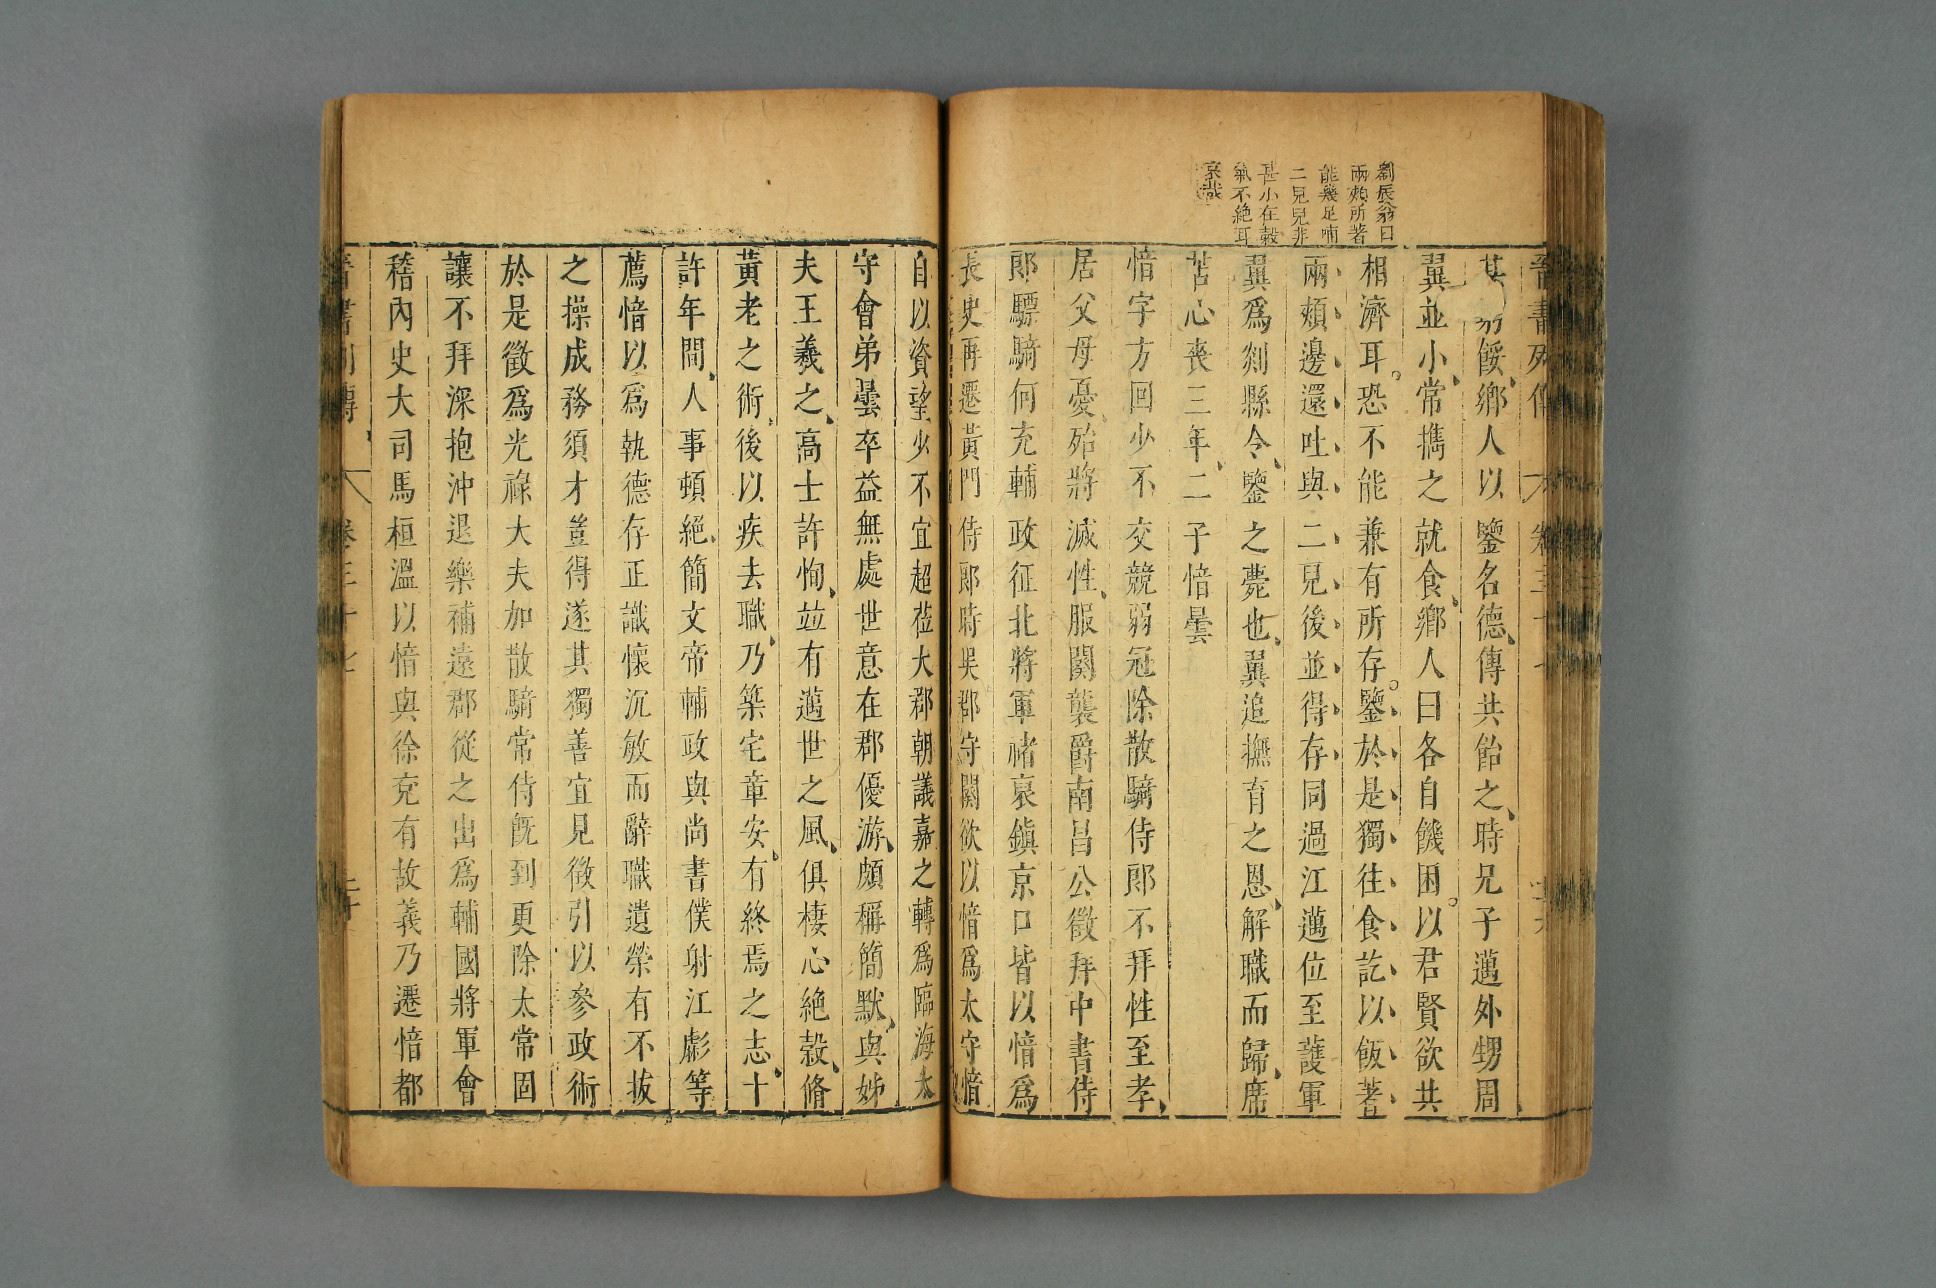 劉辰翁曰
兩頰所著
能幾足哺
二兒兒非
甚小在穀
氣不絶耳
哀哉
晉書列傳 卷三十七
其 窮餒鄉人以鑒名德傳共飴之時兄子邁外甥周
翼並小常攜之就食鄉人曰各自饑困以君賢欲共
相濟耳恐不能兼有所存鑒於是獨往食訖以飯著
兩頰邊還吐與二兒後並得存同過江邁位至護軍
翼爲剡縣令鑒之薨也翼追撫育之恩解職而歸席
苫心喪三年二子愔曇
愔字方回少不交競弱冠除散騎侍郎不拜性至孝
居父母憂殆將滅性服闋襲爵南昌公徵拜中書侍
郎驃騎何充輔政征北將軍褚裒鎮京口皆以愔爲
長史再遷黃門侍郎時吳郡守闕欲以愔爲太守愔
自以資望少不宜超蒞大郡朝議嘉之轉爲臨海太
守會弟曇卒益無處世意在郡優游頗稱簡默與姊
夫王羲之高士許恂並有邁世之風俱棲心絶穀脩
黃老之術後以疾去職乃築宅章安有終焉之志十
許年間人事頓絶簡文帝輔政與尚書僕射江虨等
薦愔以爲執德存正識懷沉敏而辭職遺榮有不拔
之操成務須才豈得遂其獨善宜見徵引以參政術
於是徵爲光祿大夫加散騎常侍既到更除太常固
讓不拜深抱沖退樂補遠郡從之出爲輔國將軍會
稽內史大司馬桓溫以愔與徐兗有故義乃遷愔都
晉書列傳 卷三十七